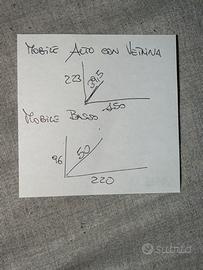 MOBILE ALTO CON VETRINA
223
39,5
150
MOBILE BASSO
96
50
220
subito